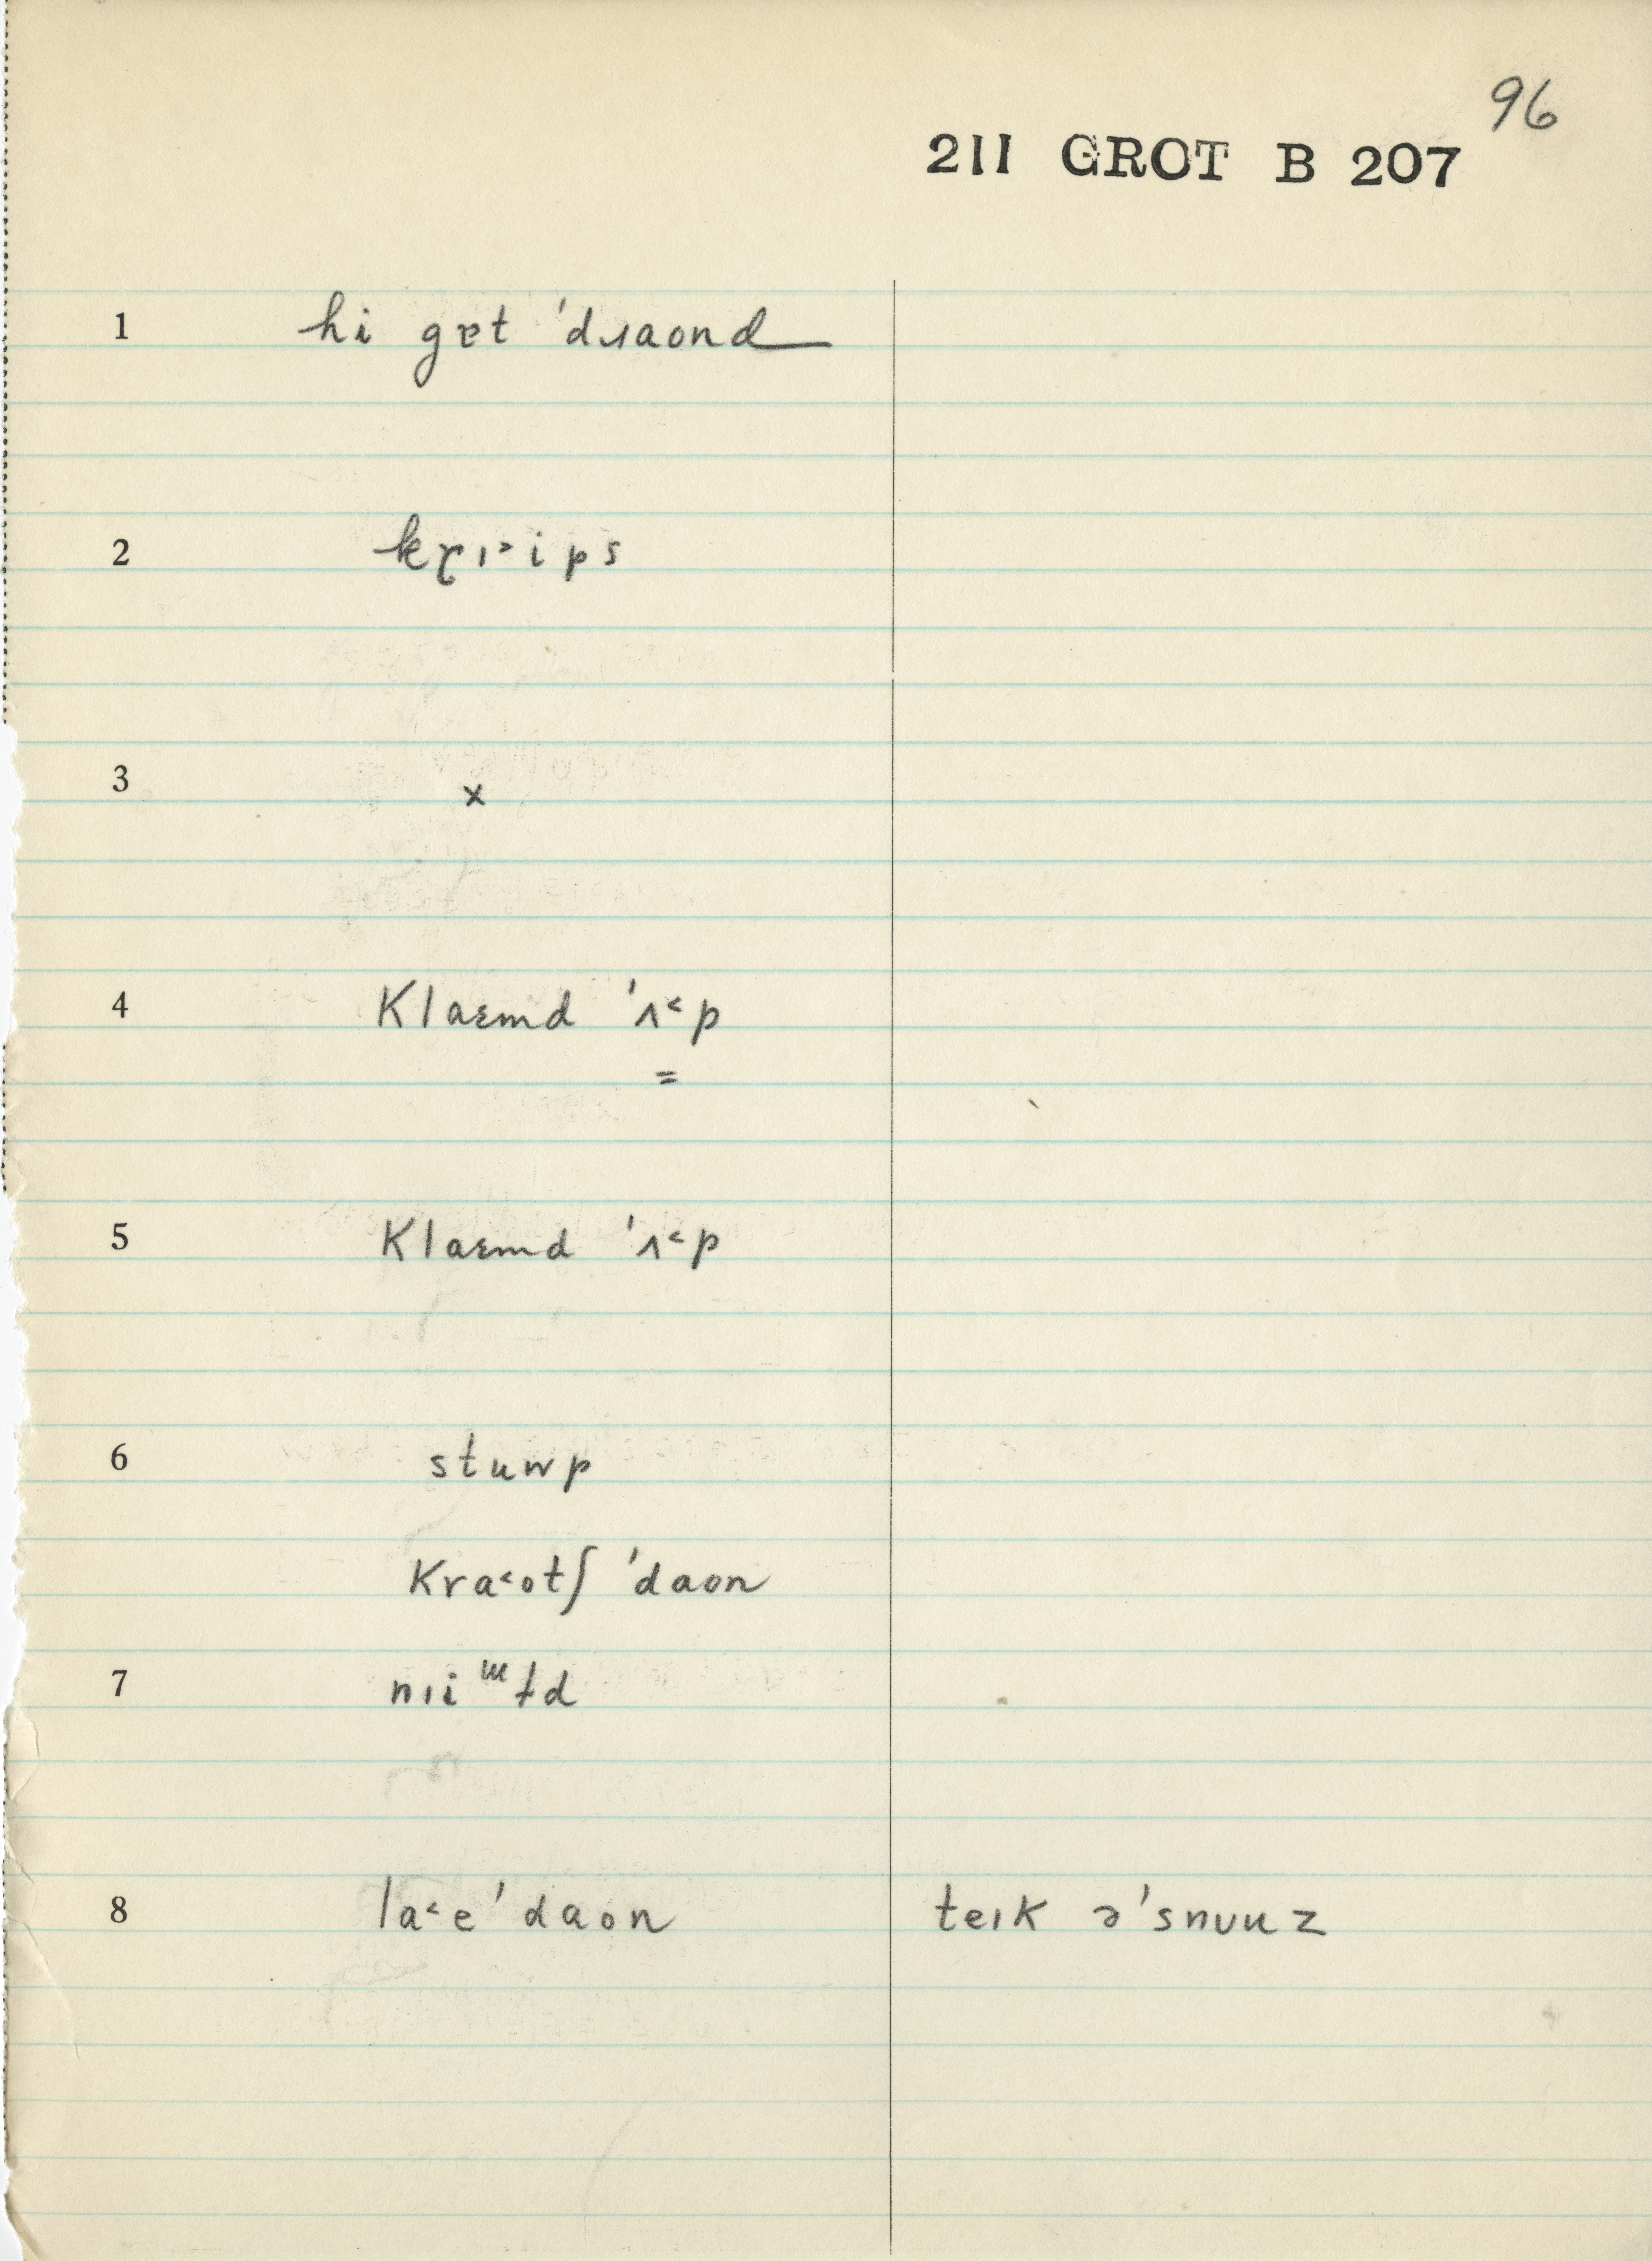 96
211 GROT B 207
1 hi gɐt 'dɹaond
2 kɽɪ˃ips
3 x
4 Klaɛmd 'ʌ˂p
=
5 Klaɛmd 'ʌ˂p
6 stuwp
Kra˂otʃ 'daon
7 nıi ɯ ƚd
8 la˂e 'daon teık ə'snuuz